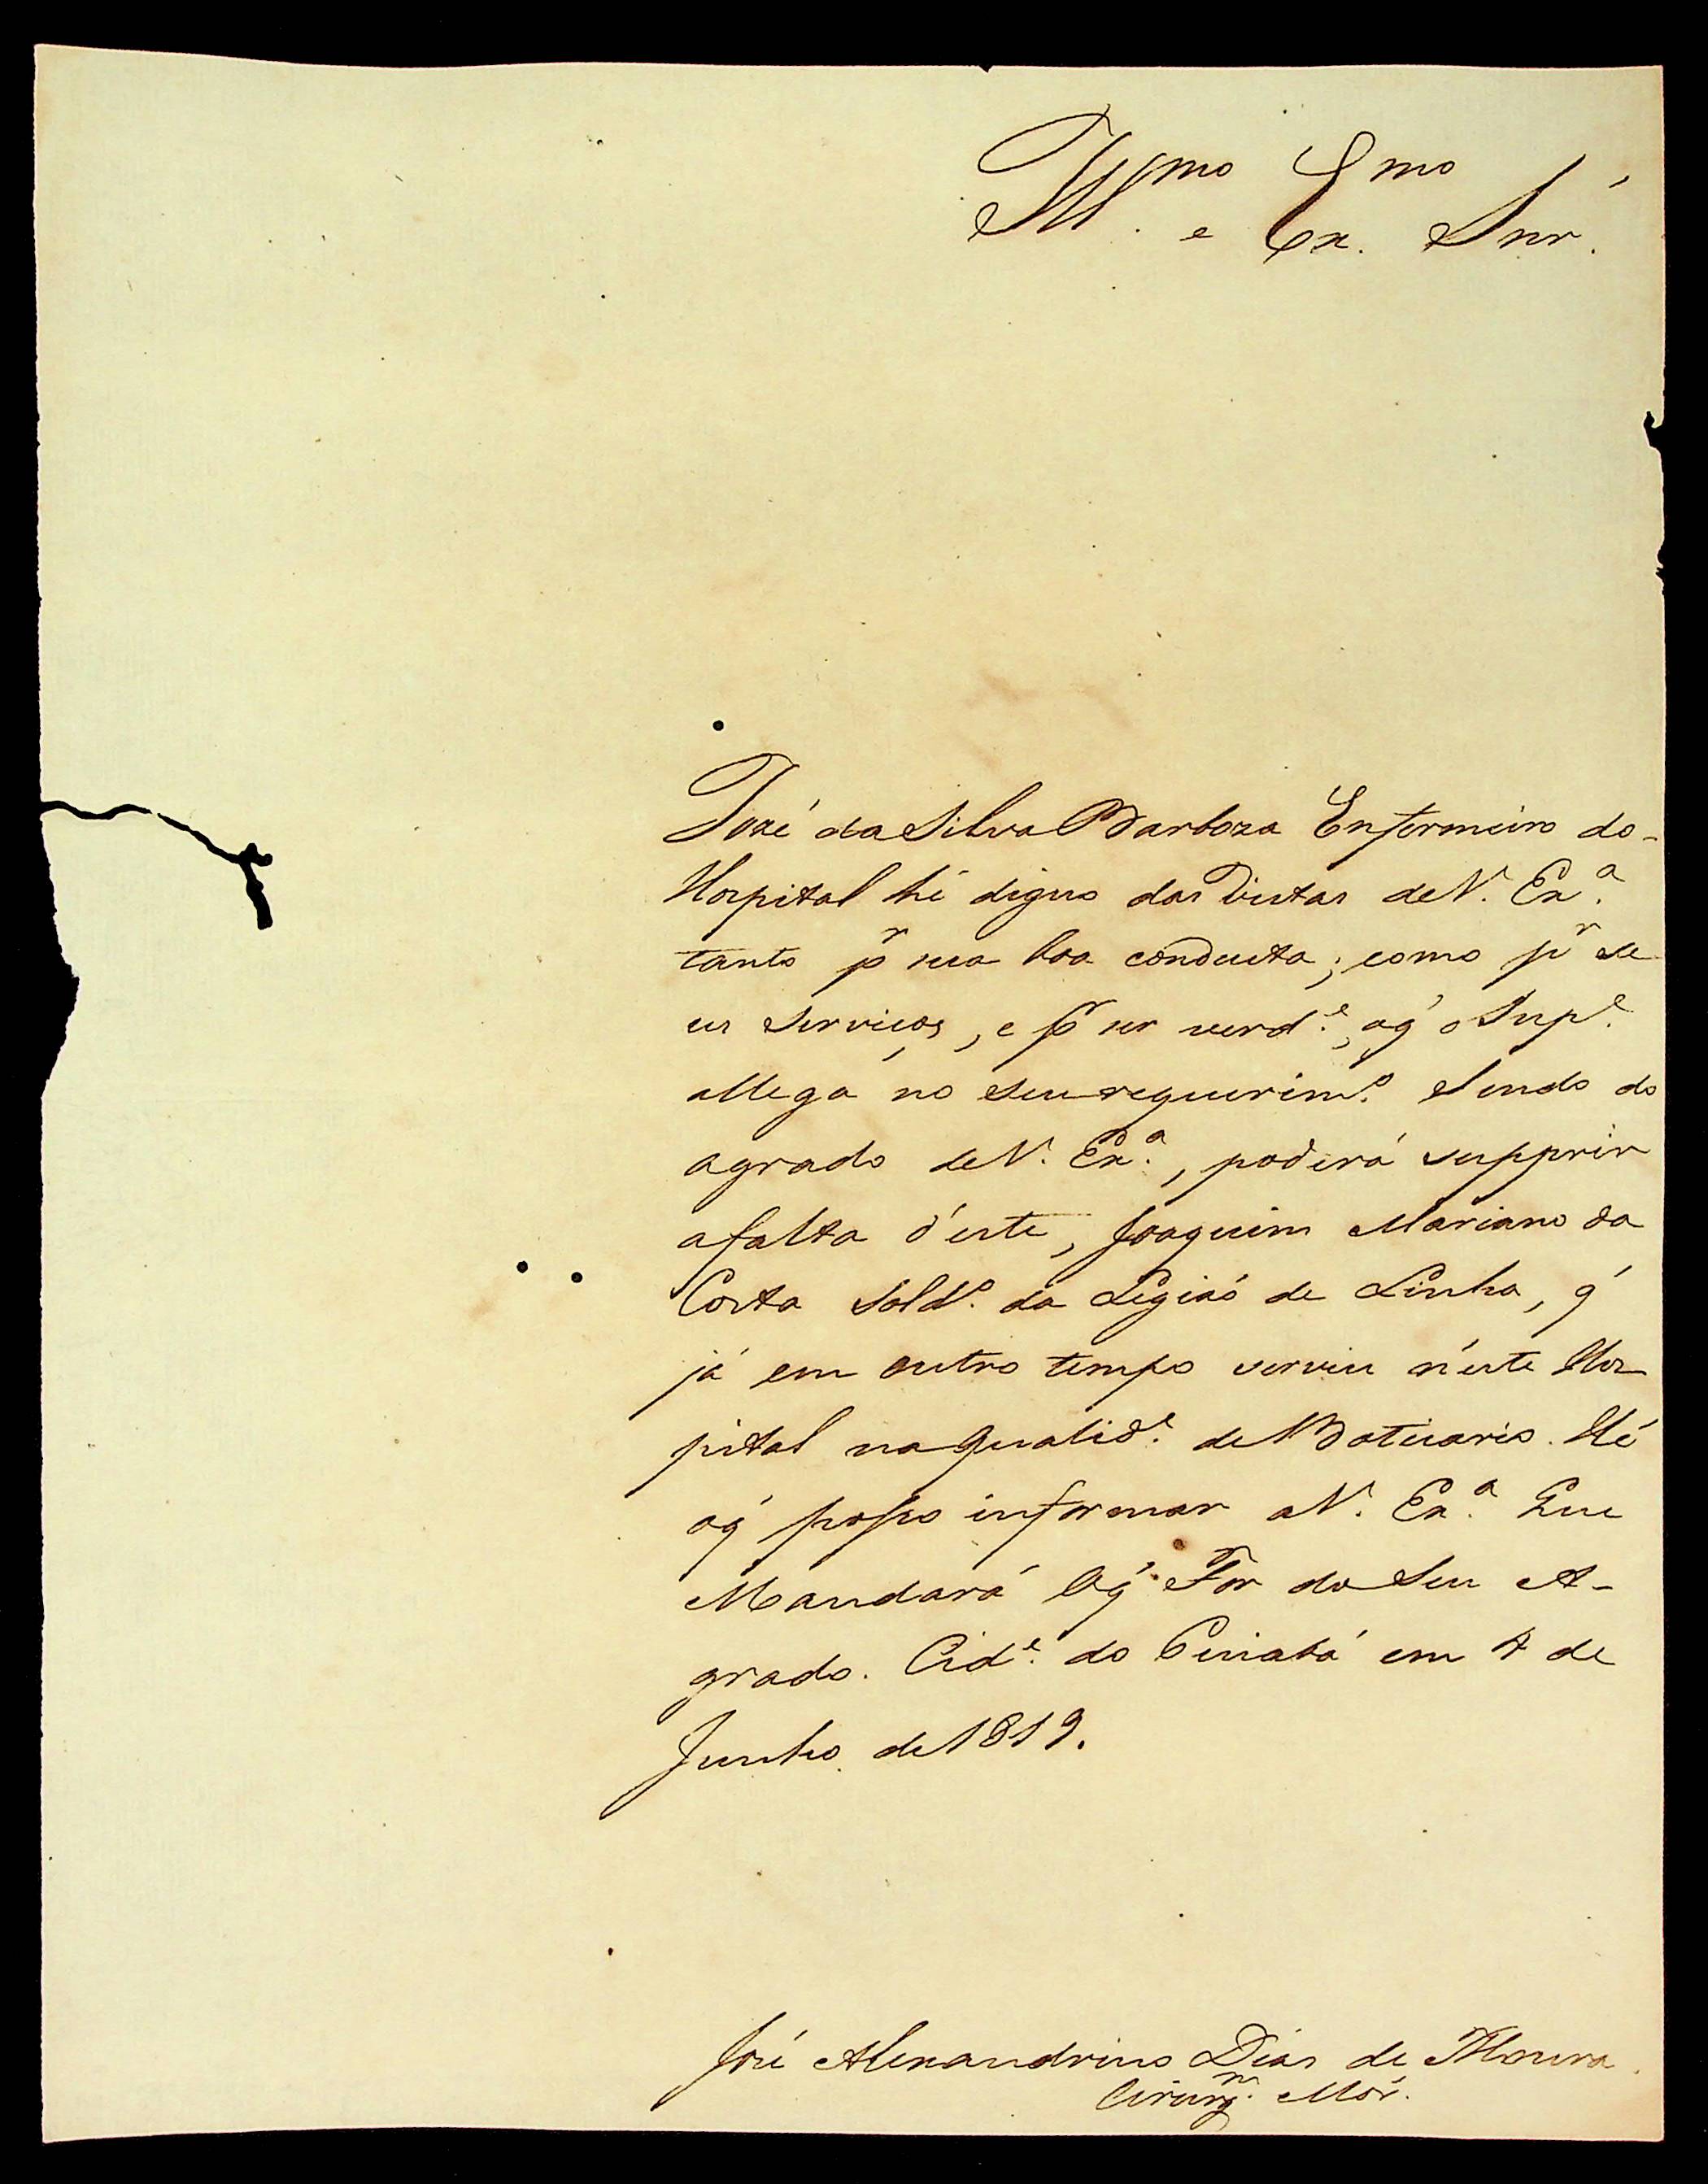 Ill.mo e Ex.mo Snr.
Jozé da Silva Barboza Enfermeiro do-
Hospital hé digno das Vistas de V. Ex.a
tanto pr sua boa conducta; como pr se
us Serviços, e pr ser verd.e, oq' o Sup.e
allega no seu requerim.to Sendo do
agrado de V. Ex.a, poderá supprir
afalta d'este, Joaquim Mariano da
Costa Sold.o da Legiaõ de Linha, q'
já em outro tempo serviu n'este Hos
pital na qualid.e de Boticario. Hé
oq' posso informar a V. Ex.a Que
Mandará Oq' For do Seu A-
grado. Cid.e do Cuiabá em 4 de
Junho de 1819.
José Alexandrino Dias de Moura.
Cirurg.m Mór.